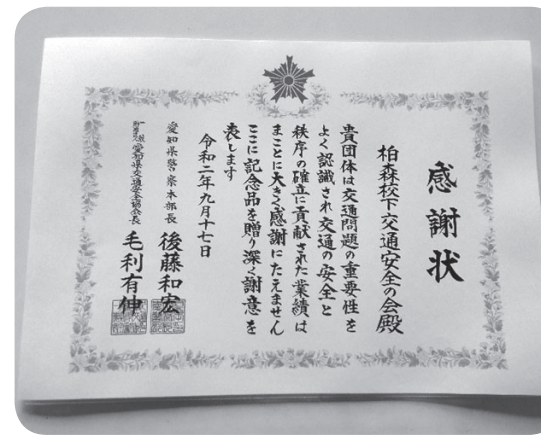 感謝状
柏森校下交通安全の会殿
貴団体は交通問題の重要性を
よく認識され交通の安全と
秩序の確立に貢献された業績は
まことに大きく感謝にたえません
ここに記念品を贈り深く謝意を
表します
令和二年九月十七日
愛知県警察本部長 後藤和宏
一般財団法人愛知県交通安全協会会長 毛利有伸